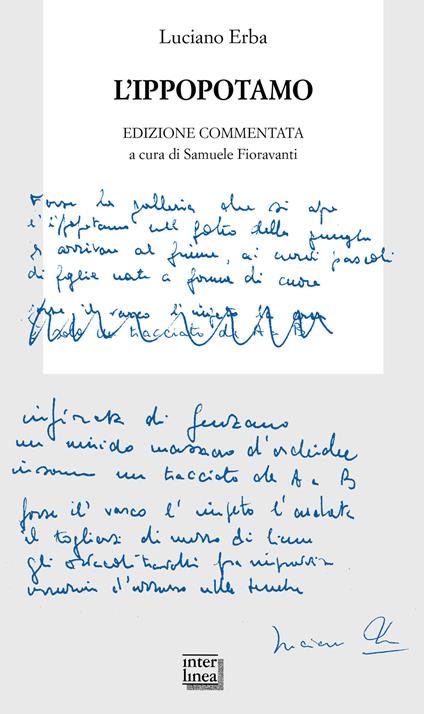 Luciano Erba
L'IPPOPOTAMO
EDIZIONE COMMENTATA
a cura di Samuele Fioravanti
Forse la galleria che si apre
l'ippopotamo nel folto della giungla
per arrivare al fiume, ai curvi pascoli
di foglie nate a forma di cuore
forse il varco l'impeto
è solo un tracciato da A a B
di
un massacro d'orchidee
insomma un tracciato da A a B
forse il varco l'impeto l'andata
il togliersi di mezzo di liane
gli ostacoli travolti
d'azzurro nelle tenebre
Luciano Erba
inter
linea